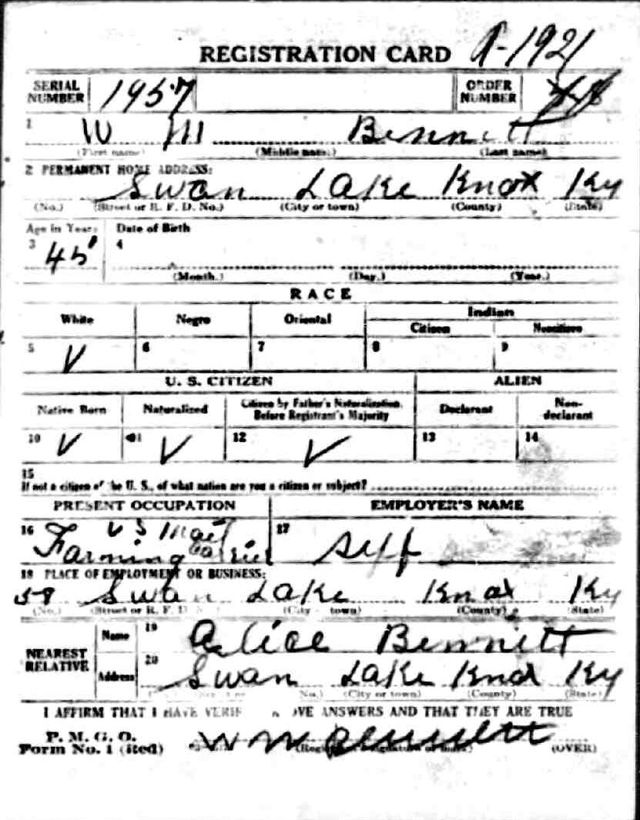 REGISTRATION CARD A-1921
SERIAL NUMBER 1957 ORDER NUMBER
1 W M Bennett
(First name) (Middle name) (Last name)
2 PERMANENT HOME ADDRESS:
Swan Lake Knox Ky
(No.) (Street or R. F. D. No.) (City or town) (County) (State)
Age in Years Date of Birth
3 45 4
(Month.) (Day.) (Year.)
RACE
White Negro Oriental Indian
Citizen Noncitizen
5 V 6 7 8 9
U. S. CITIZEN ALIEN
Native Born Naturalized Citizen by Father's Naturalization Before Registrant's Majority Declarant Non-declarant
10 V 11 V 12 V 13 14
15
If not a citizen of the U. S., of what nation are you a citizen or subject?
PRESENT OCCUPATION EMPLOYER'S NAME
16 U S Mail 17
Farming Self
18 PLACE OF EMPLOYMENT OR BUSINESS:
58 Swan Lake Knox Ky
(No.) (Street or R. F. D. (City town) (County) (State)
NEAREST RELATIVE Name 19 Alice Bennett
Address 20 Swan Lake Knox Ky
No.) (City or town) (County) (State)
I AFFIRM THAT I HAVE VERIF OVE ANSWERS AND THAT THEY ARE TRUE
P. M. G. O.
Form No. 1 (Red) W M Bennett (OVER)